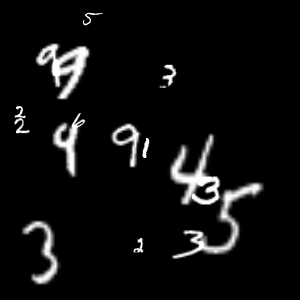 5
9 9
3
2
2
4 6
9 1
4
3
5
3
2
3